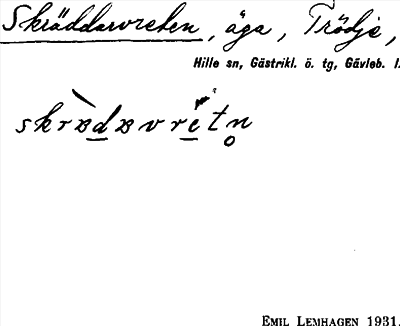 Skräddarvreten, äga, Trödje,
Hille sn, Gästrikl. ö. tg, Gävleb. l.
EMIL LEMHAGEN 1931.